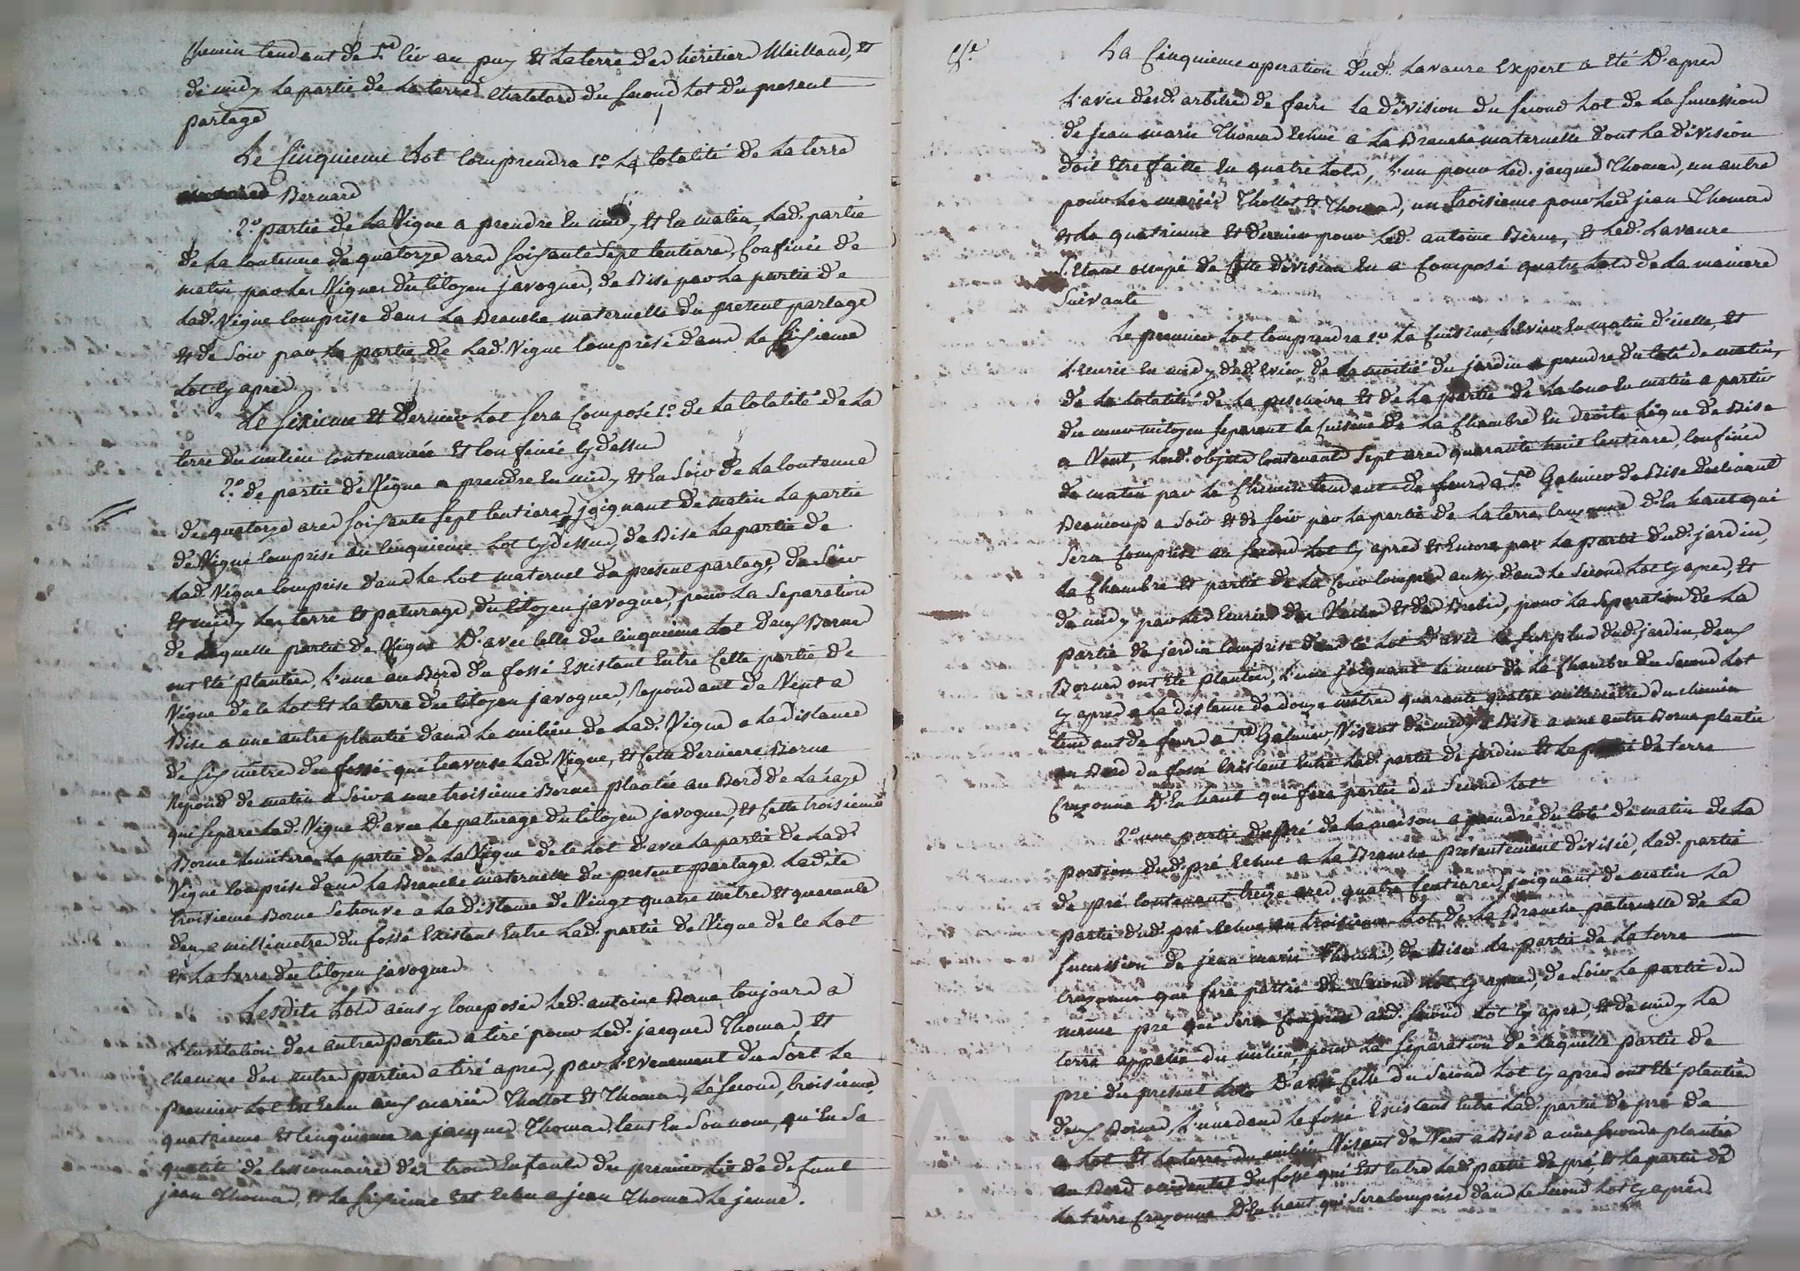 chemin tendant de St Liv au puy et la terre des héritier Maillaud, et
de midy la partie de la terre Chatelard du second lot du present
partage
Le Cinquieme Lot comprendra 1o La totalité de la terre
Bernard
2o partie de la Vigne a prendre en midy, et en matin, lad. partie
de la contenue de quatorze ares soixante sept centiares, Confinée de
matin par les Vignes du Citoyen javogues, de Bise par la partie de
lad. Vigne Comprise dans la Branche maternelle du present partage
et de Soir par la partie de lad. Vigne comprise dans le sixieme
Lot cy apres.
Le sixieme et Dernier Lot sera Composé 1o de la totalité de la
terre du milieu contenancée et confinée cy dessu
2o de partie de Vigne a prendre en midy et en Soir de la contenue
de quatorze ares soixante sept centiares, joignant de matin la partie
de Vigne comprise au cinquieme lot cy dessus, de Bise la partie de
lad. Vigne comprise dans le Lot maternel du present partage, de Soir
et midy les terre et paturage du Citoyen javogues, pour la Separation
de laquelle partie de Vigne D'avec celle du cinquieme lot deux Borne
ont été plantées, L'une au Bord du fossé Existant Entre Cette partie de
Vigne de ce Lot et la terre du Citoyen javogues, Repondant de Vent a
Bise a une autre plantée dans le milieu de lad. Vigne a la distance
de six mètre du fossé qui traverse lad. Vigne, et cette derniere Borne
Repond de matin a Soir a une troisieme Borne plantée au Bord de la haye
qui separe lad. Vigne D'avec le paturage du Citoyen javogues, et Cette troisieme
Borne limitera la partie de la Vigne de ce Lot D'avec la partie de lad.
Vigne comprise dans la Branche maternelle du present partage. Ladite
troisieme Borne se trouve a la distance de Vingt quatre mètres et quarante
deux millimetre du fossé Existant Entre lad. partie de Vigne de ce Lot
et la terre du Citoyen javogues.
Lesdits Lots ainsy composés led. antoine Berne toujours a
L'invitation des autres parties a tiré pour led. jacques Thomas, et
chacune des autres parties a tiré apres, par L'evenement du Sort le
premier Lot est échu aux mariés Thollot et Thomas, le second, troisieme,
quatrieme et cinquieme a jacques Thomas, tant En son nom, qu'En sa
qualité de cessionnaire des trois Enfants du premier lit de defunt
jean Thomas, et le sixieme Est Echu a jean Thomas le jeune.
La Cinquieme operation dud. Lavaure Expert a été D'apres
L'avis desd. arbitres de faire la division du second Lot de la succession
de jean marie Thomas Echue a la Branche maternelle dont la division
doit être faitte en quatre Lots, L'un pour led. jacques Thomas, un autre
pour les mariés Thollot et Thomas, un troisieme pour led. jean Thomas
et le quatrieme et dernier pour led. antoine Berne, et led. Lavaure
s'etant ocupé de Cette division en a Composé quatre Lots de la maniere
Suivante
Le premier Lot Comprendra 1o La Cuisine, en matin d'icelle, et
L'ecurie en midy de la moitié du jardin a prendre du coté de matin,
de la totalité de la et de la partie de la Cour en matin a partir
du mur mitoyen separant la cuisine de la Chambre en droite Ligne de Bise
a Vent, lesd. objets contenants sept ares quarante huit centiares, confinés
de matin par le chemin tendant de feurs a St Galmier de Bise declinant
Beaucoup a Soir et de Soir par la partie de la terre Crayonne d'en haut qui
sera comprise au second Lot cy apres et Encore par la partie dud. jardin,
la Chambre et partie de la Cour compris aussy dans le Second Lot cy apres, et
de midy par les Ecuries des Vaches et des Brebis, pour la Separation de la
partie de jardin comprise dans ce Lot D'avec le surplus dud. jardin deux
Bornes ont été plantées, L'une joignant le mur de la Chambre du Second Lot
cy apres a la distance de douze mètres quarante quatre millimètre du chemin
tendant de feurs a St Galmier Visant de midy a Bise a une autre Borne plantée
au Bord du fossé Existant Entre lad. partie de jardin et la partie de terre
Crayonne D'en haut que fera partie du Second Lot
2o une partie du pré de la maison a prendre du coté de matin de la
portion dud. pré Echue a la Branche presentement divisée, lad. partie
de pré contenant treize ares quatre centiares, joignant de matin la
partie dud. pré Echue au troisieme Lot de la Branche paternelle de la
succession de jean marie Thomas, de Bise la partie de la terre
Crayonne que fera partie du Second Lot cy apres, de Soir la partie du
même pré qui sera comprise aud. second Lot cy apres, et de midy la
terre appelée du milieu, pour la separation de laquelle partie de
pré du present Lot D'avec Celle du Second Lot cy apres ont été plantées
deux Bornes, L'une dans le fossé Existant Entre lad. partie de pré de
ce Lot et la terre du milieu Visant de Vent a Bise a une seconde plantée
au Bord occidental du fossé qui est Entre lad. partie de pré, et la partie de
la terre Crayonne D'en haut qui sera comprise dans le Second Lot cy après